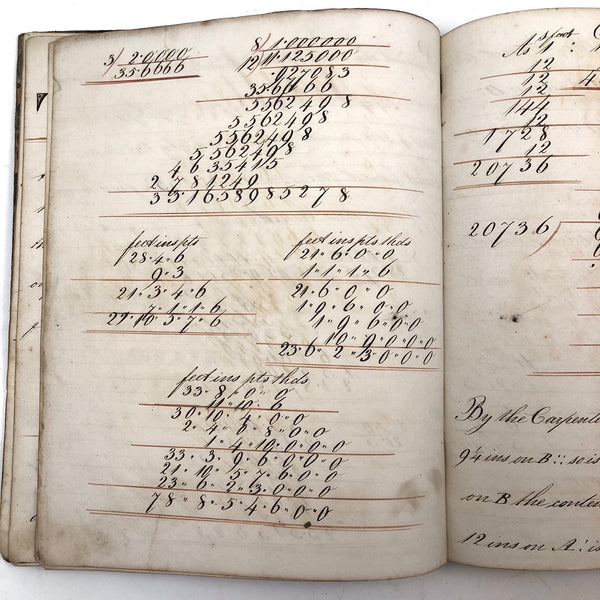 3) 2.0000
35.6666
8) 1.000000
12) 11.125000
.927083
35.6666
5562498
5562498
5562498
5562498
4635415
2781249
33165898 5278
feet ins pts
28 " 4 " 6
9 " 3
21 " 3 " 4 " 6
7 " 1 " 1 " 6
29 " 10 " 3 " 7 " 6
feet ins pts thds
21 " 6 " 0 " 0
1 " 1 " 1 " 6
21 " 6 " 0 " 0
1 " 9 " 6 " 0 " 0
1 " 9 " 6 " 0 " 0
10 " 9 " 0 " 0 " 0
23 " 6 " 2 " 3 " 0 " 0 " 0
feet ins pts thds
33 " 8 " 0 " 0
11 " 10 " 6
30 " 10 " 4 " 0 " 0
2 " 4 " 6 " 8 " 0 " 0
1 " 4 " 10 " 0 " 0 " 0
33 " 3 " 9 " 6 " 0 " 0 " 0
21 " 10 " 5 " 7 " 6 " 0 " 0
23 " 6 " 2 " 3 " 0 " 0 " 0
78 " 8 " 5 " 4 " 6 " 0 " 0
foot
As 1 :
12
12
12
144
12
1728
12
20736
20736
By the Carpente
9¼ ins on B :: so is
on B the conten
12 ins on A : is